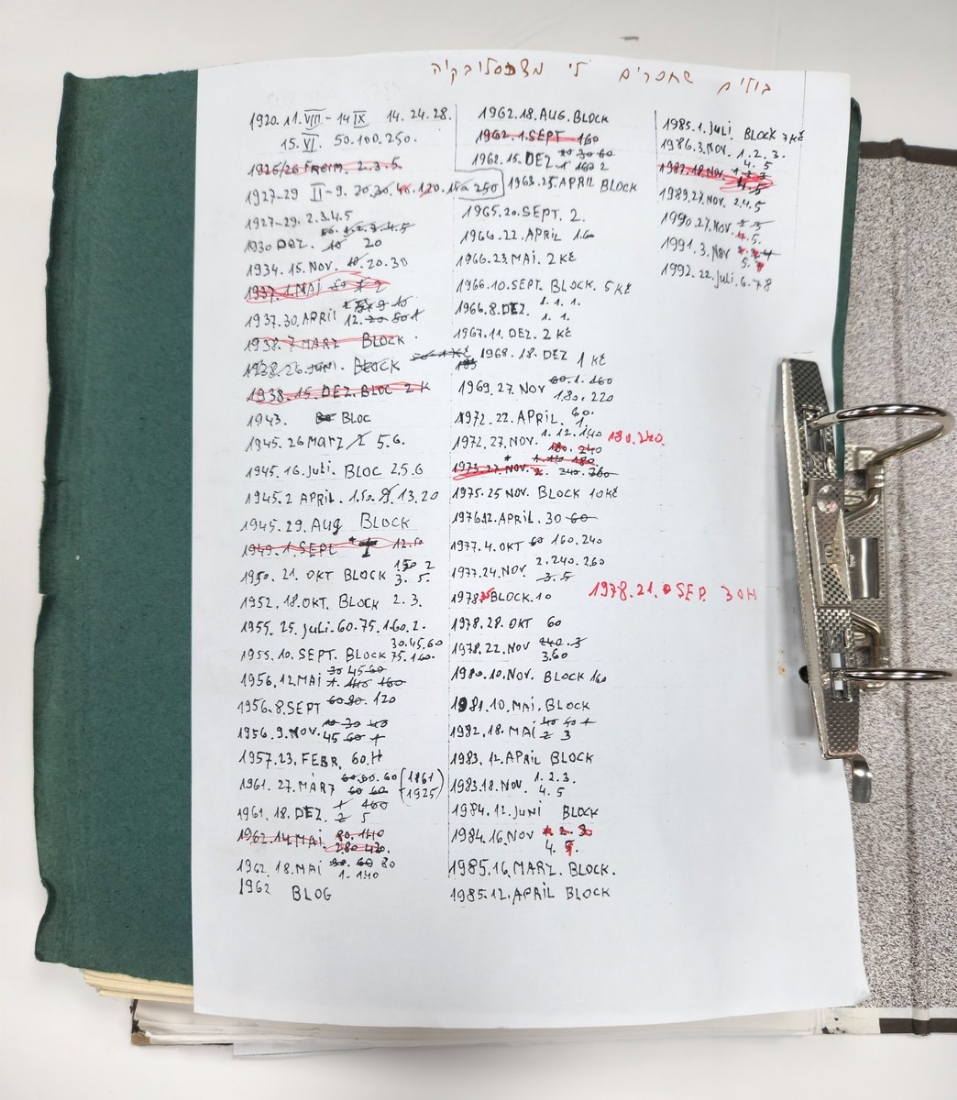 בולים שחסרים לי מצ'כסלובקיה
1920.11.VIII - 14 IX 14.24.28.
15.VI. 50.100.250.
1925/26 2.3.5
1927-29 II-9. 20.30.
1927-29. 2.3.4.5
1930 DEZ. 10 20
1934.15.NOV. 10.20.30
1937.1.MAI
1937.30.APRIL 12.20
1938.7 MARZ BLOCK.
1938.26.JUNI. BLOCK
1938.15.DEZ. BLOC 2 K
1943. BLOC
1945.26 MARZ 5.6.
1945.16.Juli. BLOC 2.5.6
1945.2 APRIL. 1.50. 9. 13.20
1945.29.Aug BLOCK
1949.1.SEPT
1950.21.OKT BLOCK 150 2
3. 5.
1952.18.OKT. BLOCK 2.3.
1955.25.Juli.60.75.1.60.2.
1955.10.SEPT. BLOCK 30.45.60
75.1.60.
1956.12.MAI 30 45 60
1956.8.SEPT 60 80. 120
1956.9.NOV. 10 30 40
45 60 1
1957.23.FEBR. 60.H
1961.27.MÄRZ 60.60.60 (1861
60 60 1925)
1961.18.DEZ. 1 160
2 5
1962.14 MAI. 80.140
280
1962.18.MAI 60 80
1.140
1962 BLOG
1962.18.AUG.BLOCK
1962.1.SEPT 160
1962.15.DEZ 20 30 60
1 160 2
1963.25.APRIL BLOCK
1965.20.SEPT. 2.
1966.22.APRIL 1.60
1966.23.MAI. 2 Kč
1966.10.SEPT. BLOCK. 5 Kč
1966.8.DEZ. 1.1.1.
1.1.
1967.11.DEZ. 2 Kč
1968.18.DEZ 1 Kč
1969.27.NOV 60.1.160
1.80.220
1972.22.APRIL. 60.
1.
1972.27.NOV. 1.12.140 180.240
180. 240
1975.27.NOV. 2. 240.260
1975.25 NOV. BLOCK 10Kč
1976.12.APRIL.30 60
1977.4.OKT 60 160.240
1977.24.NOV. 2.240.260
3.5
1978 BLOCK.10 1978.21. SEP. 30H
1978.28.OKT 60
1978.22.NOV 240.3
3.60
1980.10.NOV. BLOCK 160
1981.10.MAI.BLOCK
1982.18.MAI 40 60 1
2 3
1983.12.APRIL BLOCK
1983.18.NOV. 1.2.3.
4.5
1984.12.JUNI BLOCK
1984.16.NOV 1.2.3
4. 5.
1985.16.MARZ.BLOCK.
1985.12.APRIL BLOCK
1985.1.JULI. BLOCK 7Kč
1986.3.NOV. 1.2.3.
4.5
1987.18.NOV. 1.2.3
4.5
1989.27.NOV. 2.4.5
1990.27.NOV. 2 3
4.5.
1991.3.NOV 2.3.4
5.7
1992.22.Juli.6.78